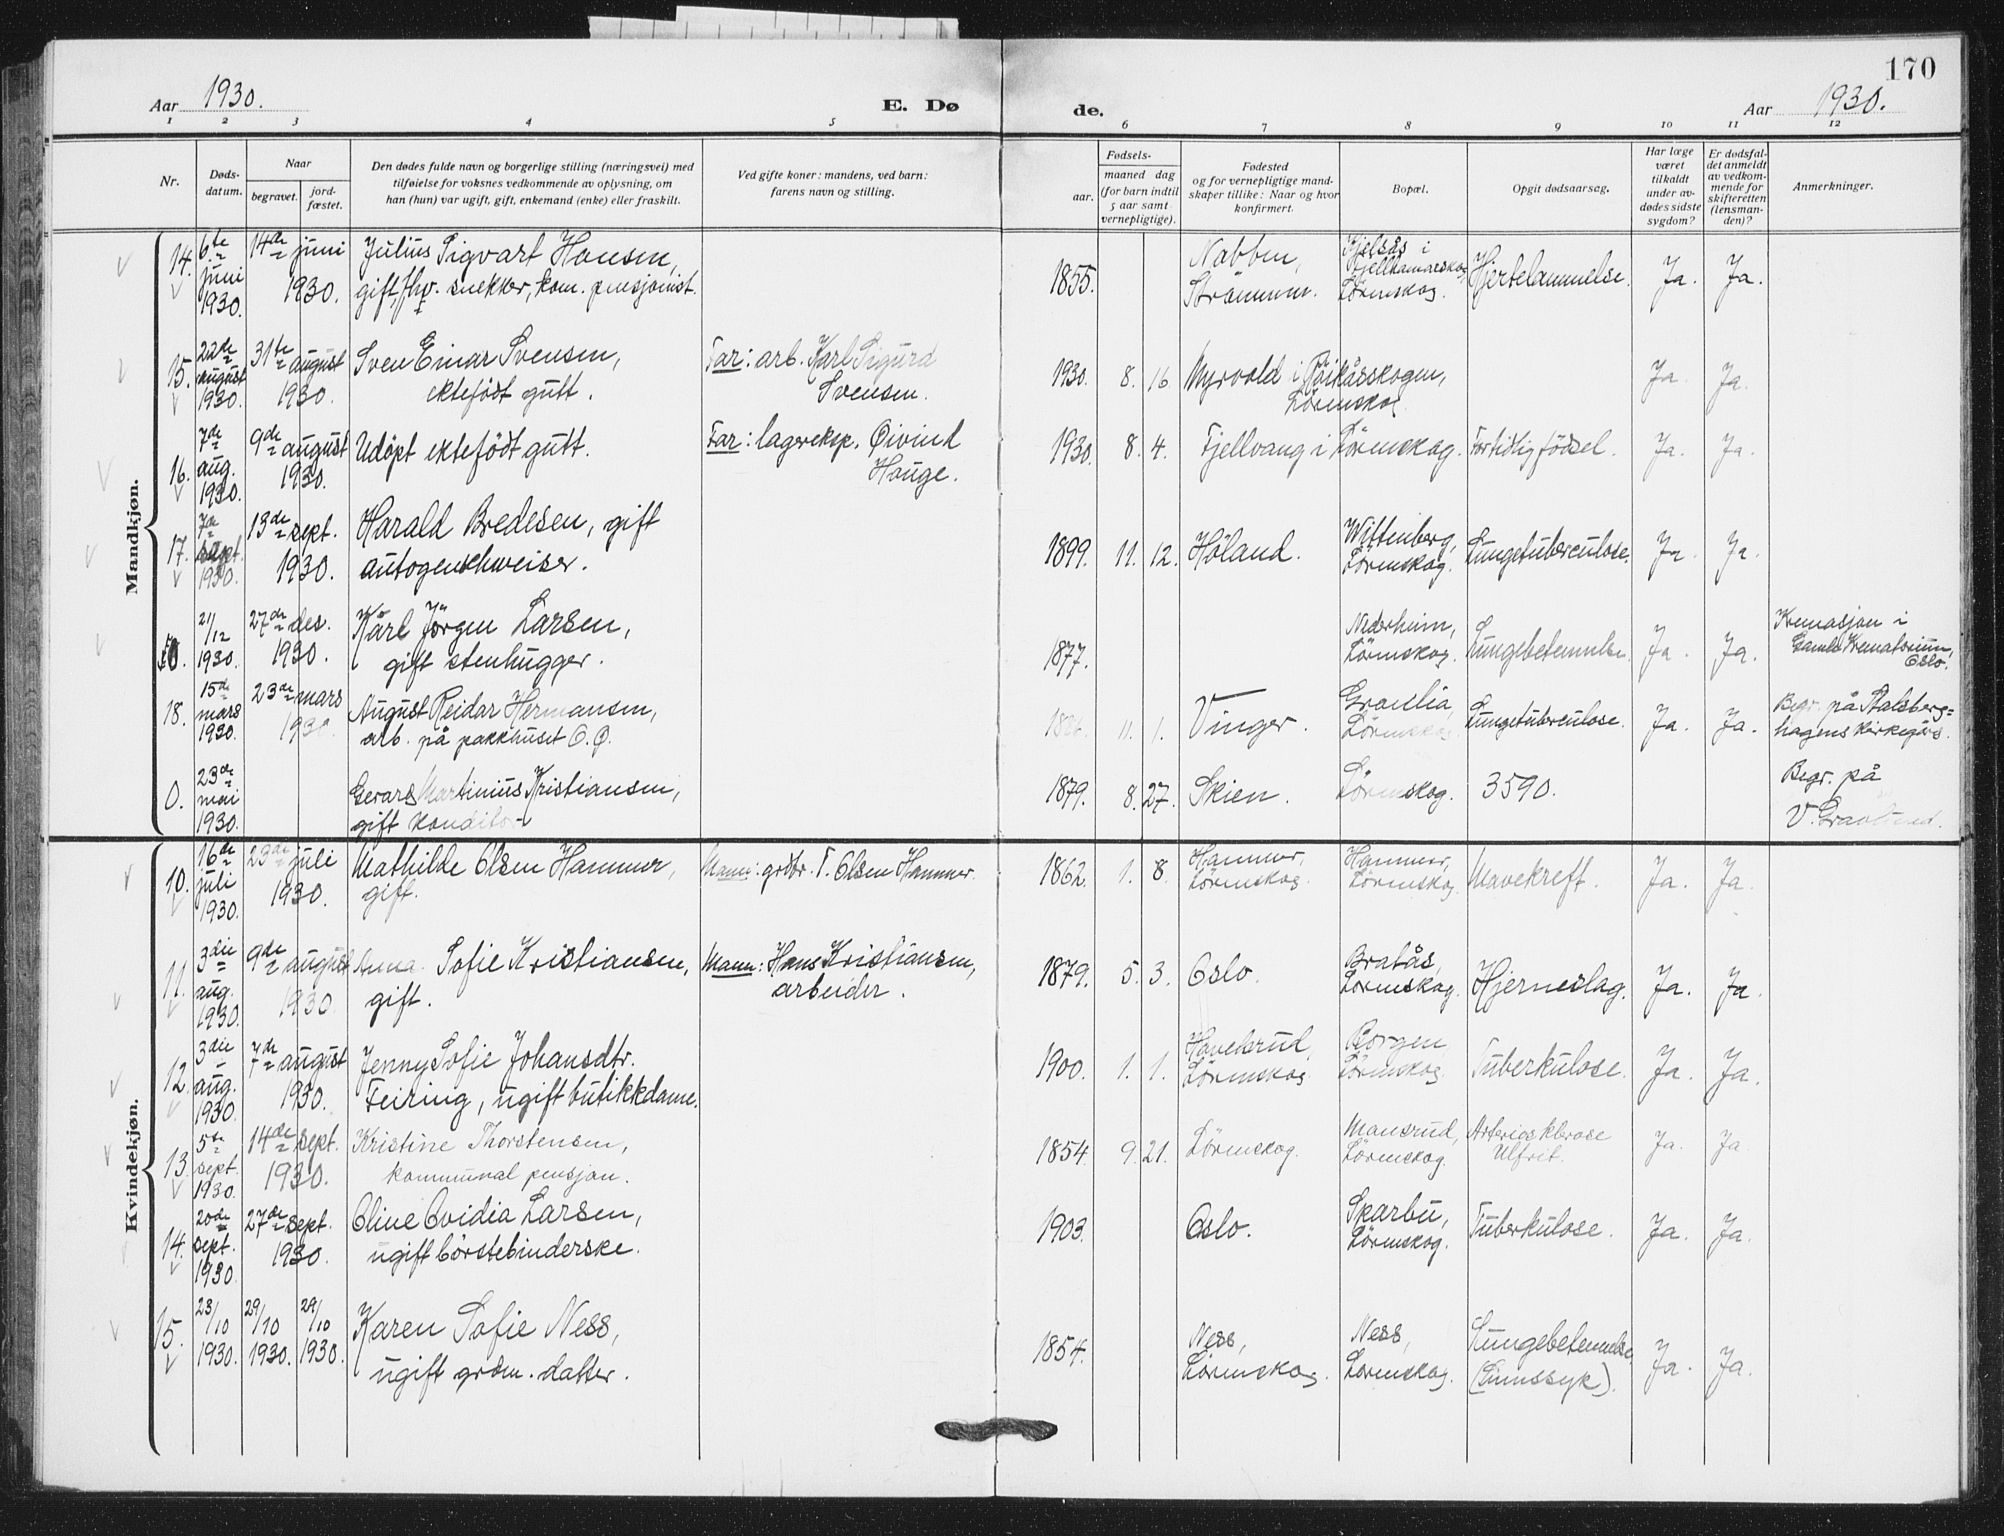 170
Aar 1930. E. Dø de. Aar 1930.
1 2 3 4 5 6 7 8 9 10 11 12
Nr. Døds-datum. Naar begravet. jord-fæstet. Den dødes fulde navn og borgerlige stilling (næringsvei) med tilføielse for voksnes vedkommende av oplysning, om han (hun) var ugift, gift, enkemand (enke) eller fraskilt. Ved gifte koner: mandens, ved barn: farens navn og stilling. Fødsels- aar. maaned dag (for barn indtil 5 aar samt vernepligtige). Fødested og for vernepligtige mandskaper tillike: Naar og hvor konfirmert. Bopæl. Opgit dødsaarsag. Har læge været tilkaldt under avdødes sidste sygdom? Er dødsfaldet anmeldt av vedkommende for skifteretten (lensmanden)? Anmerkninger.
Mandkjøn.
14. 6te juni 1930. 14de juni 1930. Julius Sigvart Hansen, gift fhv. snekker, kom. pensjonist. 1855. Nabben, Strömmen. Kjelsås i Fjellhamarskog, Lörenskog. Hjertelammelse. Ja. Ja.
15. 22de august 1930. 31te august 1930. Sven Einar Svensen, ektefödt gutt. Far: arb. Karl Sigurd Svensen. 1930. 8. 16 Myrvold i Lörenskog. Ja. Ja.
16. 7de aug. 1930. 9de august 1930. Udöpt ektefödt gutt. Far: lagereksp. Öivind Hauge. 1930. 8. 4. Fjellvang i Lörenskog. For tidlig födsel. Ja. Ja.
17. 7de sept. 1930. 13de sept. 1930. Harald Bredesen, gift autogenschweiser. 1899. 11. 12. Höland. Wittenberg, Lörenskog. Lungetuberculose. Ja. Ja.
0. 21/12 1930. 27de des. 1930. Karl Jörgen Larsen, gift stenhugger. 1877. Nederheim, Lörenskog. Lungebetennelse. Ja. Ja. Kremasjon i Gamle Krematorium, Oslo.
18. 15de mars 1930. 23de mars 1930. August Reidar Hermansen, arb. på pakkhuset O. Ö. 11. 1. Vinger. Granlia, Lörenskog. Lungetuberculose. Ja. Ja. Begr. på Stalsberghagens kirkegårs.
0. 23de mai 1930. Gerard Martinius Kristiansen, gift konditor 1879. 8. 27. Skien. Lörenskog. 3590. Begr. på V. Gravlund.
Kvindekjøn.
10. 16de juli 1930. 23de juli 1930. Mathilde Olsen Hammer, gift. Mann: grdbr. T. Olsen Hammer. 1862. 1. 8. Hammer, Lörenskog. Hammer, Lörenskog. Mavekreft. Ja. Ja.
11. 3die aug. 1930. 9de august 1930. Anna Sofie Kristiansen, gift. Mann: Hans Kristiansen, arbeider. 1879. 5. 3. Oslo. Bratås, Lörenskog. Hjerneslag. Ja. Ja.
12. 3die aug. 1930. 7de august 1930. Jenny Sofie Johansdtr. Feiring, ugift butikkdame. 1900. 1. 1. Havelsrud, Lörenskog. Borgen, Lörenskog. Tuberkulose. Ja. Ja.
13. 5te sept. 1930. 14de sept. 1930. Kristine Thorstensen, kommunal pensjon. 1854. 9. 21. Lörenskog. Mansrud, Lörenskog. Arterioskleros Ja. Ja.
14. 20de sept. 1930. 27de sept. 1930. Oline Ovidia Larsen, ugift börstebinderske. 1903. Oslo. Skarbu, Lörenskog. Tuberkulose. Ja. Ja.
15. 23/10 1930. 29/10 1930. 29/10 1930. Karen Sofie Ness, ugift grdm. datter. 1854. Ness, Lörenskog. Ness, Lörenskog. Lungebetennelse (Sinnssyk). Ja. Ja.